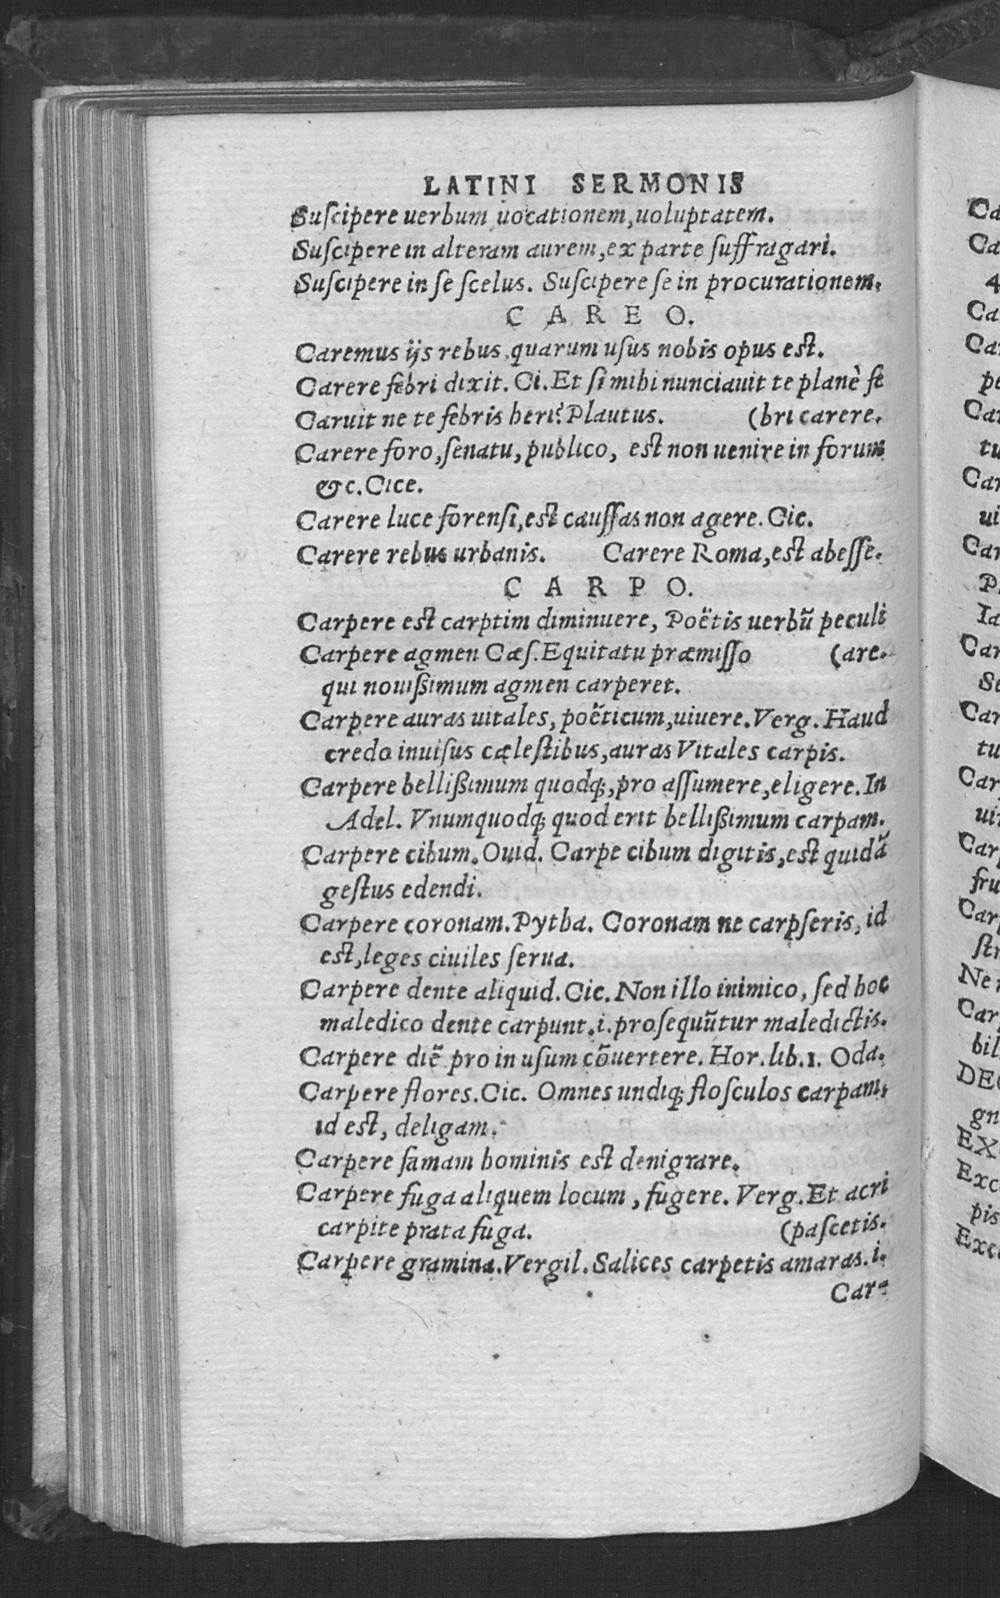 LATINI SERMONIS
Suſcipere uerbum uocationem, uoluptatem.
Suſcipere in alteram aurem, ex parte ſuffragari.
Suſcipere in ſe ſcelus. Suſcipere ſe in procurationem.
C A R E O.
Caremus ijs rebus, quarum uſus nobis opus est.
Carere febri dixit. Ci. Et ſi mihi nunciauit te planè fe
Caruit ne te febris heri? Plautus. (bri carere.
Carere foro, ſenatu, publico, est non uenire in forum
&c. Cice.
Carere luce forenſi, est cauſſas non agere. Cic.
Carere rebus urbanis. Carere Roma, est abeſſe.
C A R P O.
Carpere est carptim diminuere, Poëtis uerbũ peculi
Carpere agmen Cæſ. Equitatu præmiſſo (are.
qui nouißimum agmen carperet.
Carpere auras uitales, poëticum, uiuere. Verg. Haud
credo inuiſus cæleſtibus, auras Vitales carpis.
Carpere bellißimum quodq;, pro aſſumere, eligere. In
Adel. Vnumquodq; quod erit bellißimum carpam.
Carpere cibum. Ouid. Carpe cibum digitis, est quidã
geſtus edendi.
Carpere coronam. Pytha. Coronam ne carpſeris, id
est, leges ciuiles ſerua.
Carpere dente aliquid. Cic. Non illo inimico, ſed hoc
maledico dente carpunt. i. proſequũtur maledictis.
Carpere diẽ pro in uſum cõuertere. Hor. lib. 1. Oda.
Carpere flores. Cic. Omnes undiq; floſculos carpam,
id est, deligam.
Carpere famam hominis est denigrare.
Carpere fuga aliquem locum, fugere. Verg. Et acri
carpite prata fuga. (paſcetis.
Carpere gramina. Vergil. Salices carpetis amaras. i.
Car-
Ca
Ca
4
Ca
Car
pe
Car
tu
Car
ui
Car
P
Ia
Car
Se
Car
tu
Car
uir
Carp
fru
Carp
ſtr
Ner
Car
bil
DEC
gn
EXC
Exc
pis
Exc